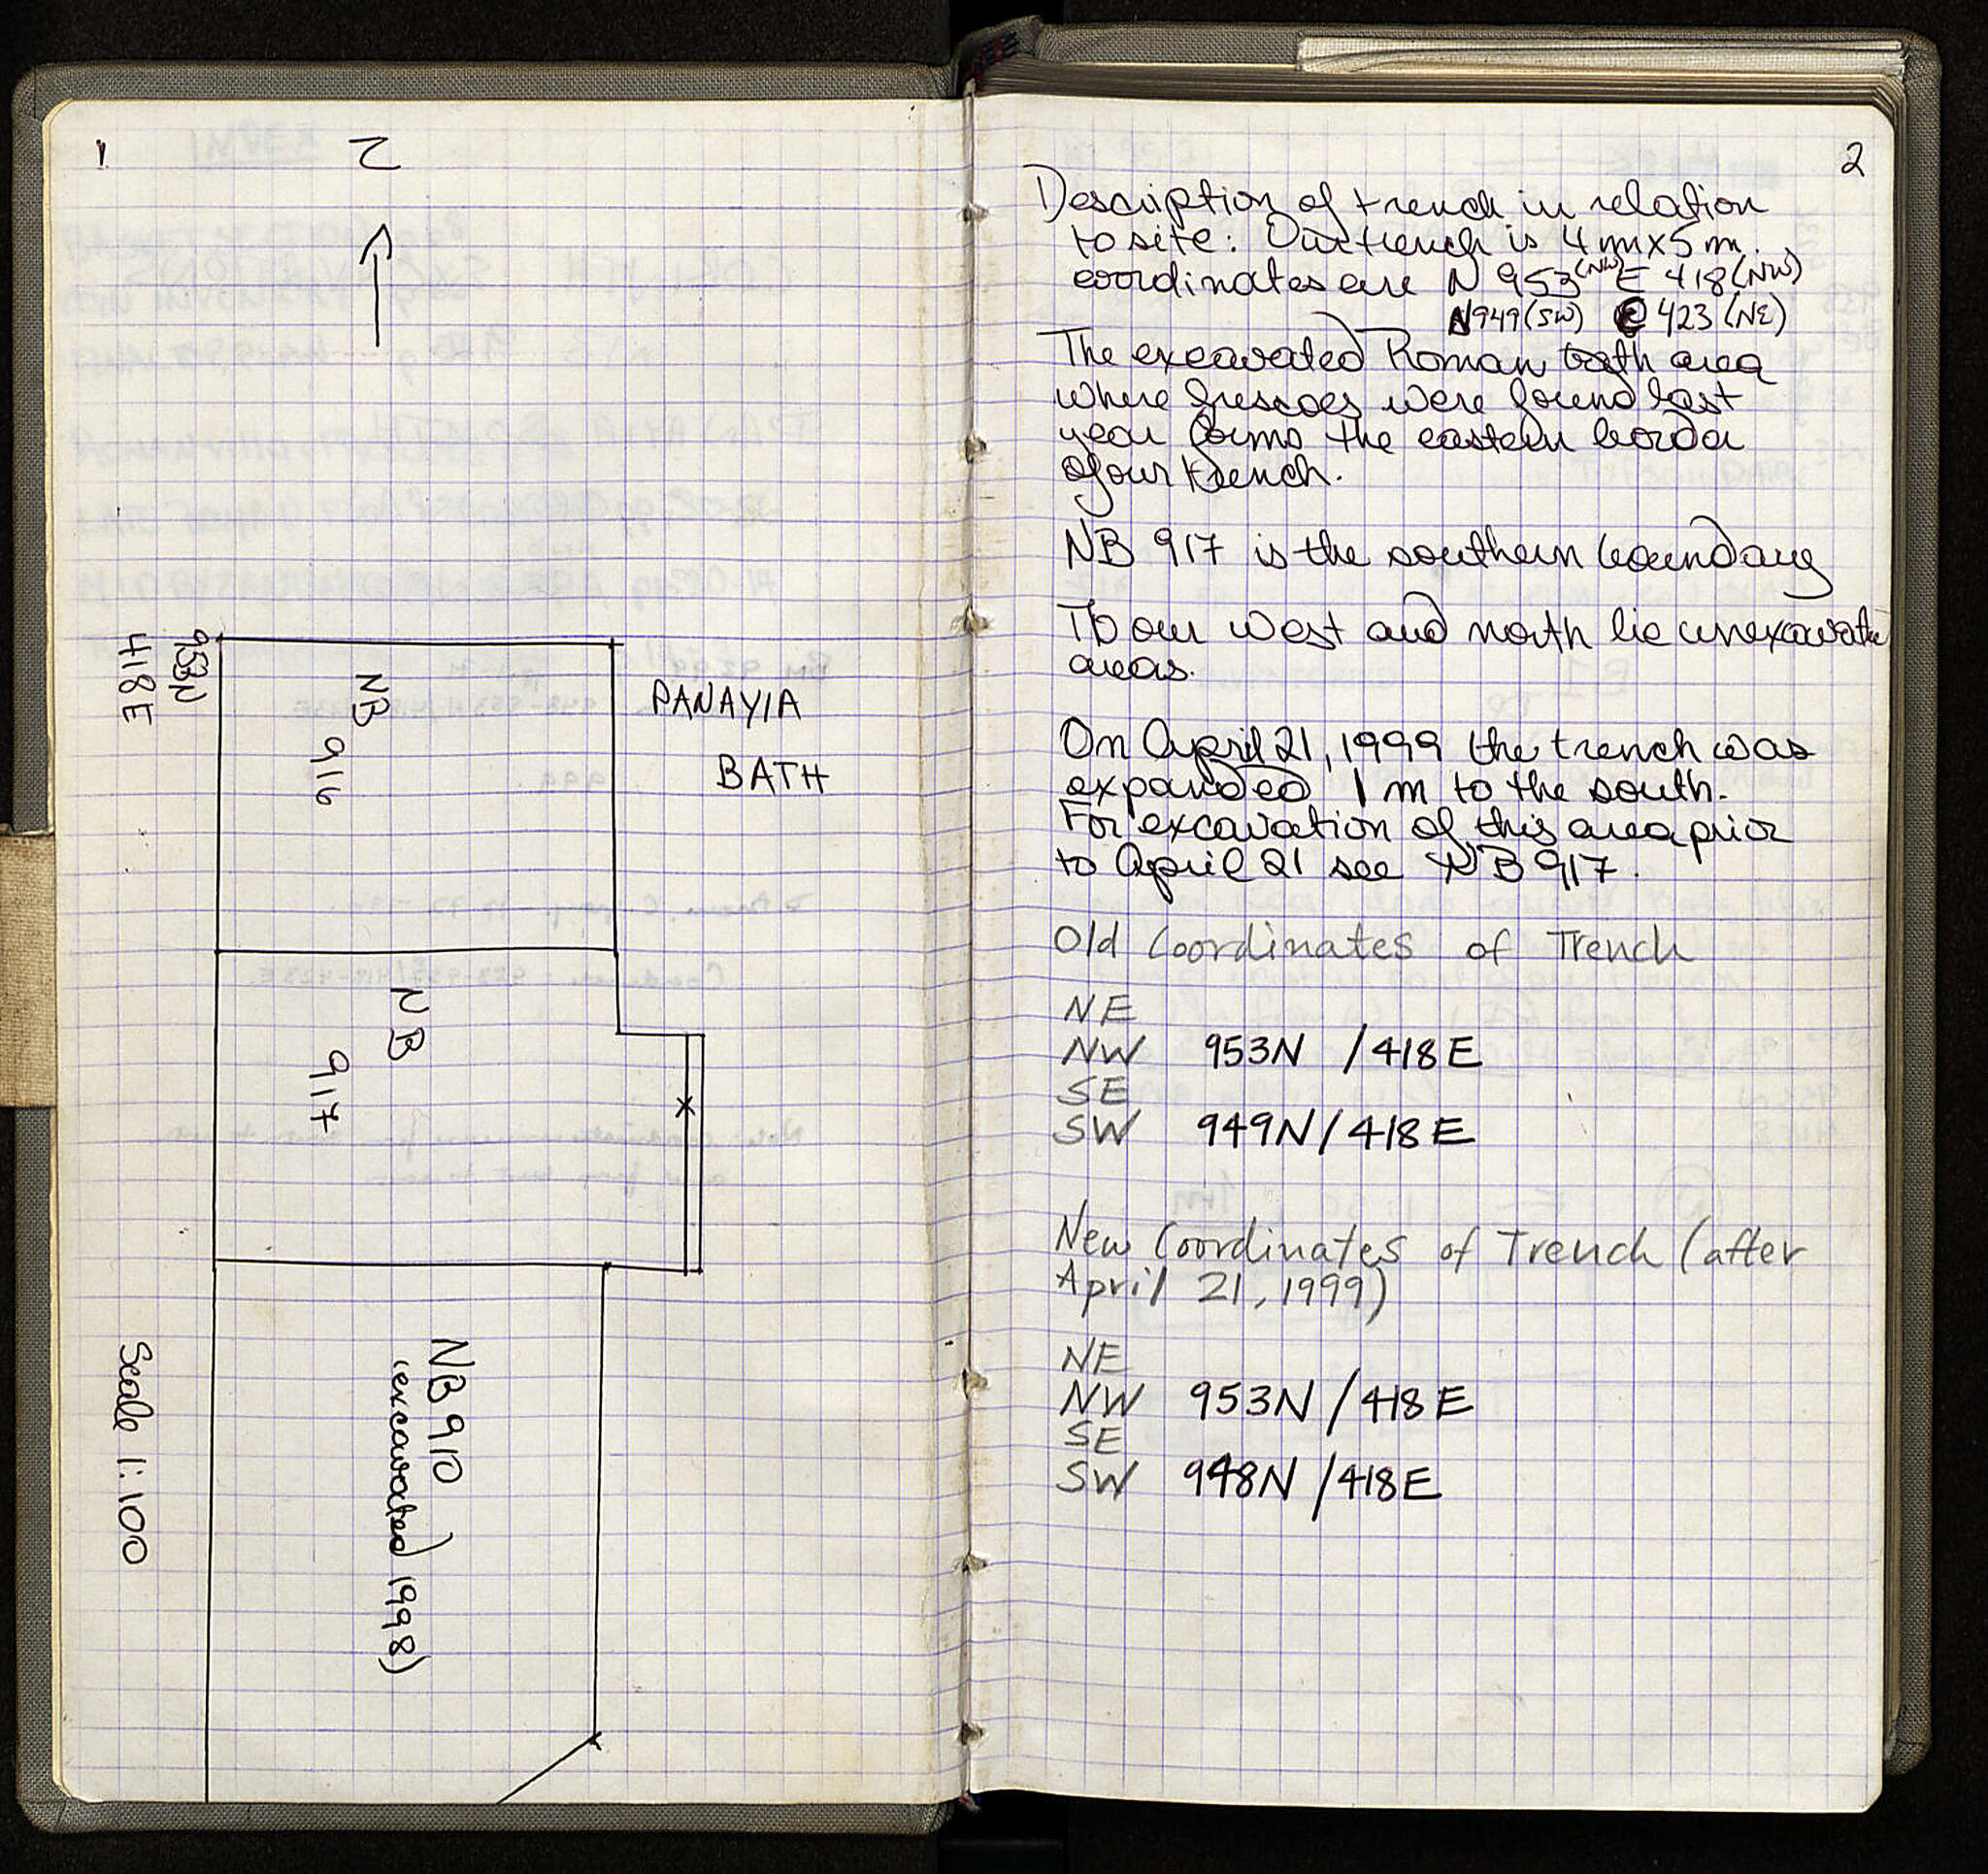 1
N
953N
418E
NB
916
PANAYIA
BATH
NB
917
NB 910
(excavated 1998)
Scale 1:100
2
Description of trench in relation
to site: Our trench is 4m x 5m.
coordinates are N 953(NW) E 418(NW)
N949(SW) E 423(NE)
The excavated Roman bath area
where frescoes were found last
year forms the eastern border
of our trench.
NB 917 is the southern boundary
To our west and north lie unexcavated
areas.
On April 21, 1999 the trench was
expanded 1m to the south.
For excavation of this area prior
to April 21 see NB 917.
Old Coordinates of Trench
NE
NW 953N /418E
SE
SW 949N/418E
New Coordinates of Trench (after
April 21, 1999)
NE
NW 953N/418E
SE
SW 948N/418E